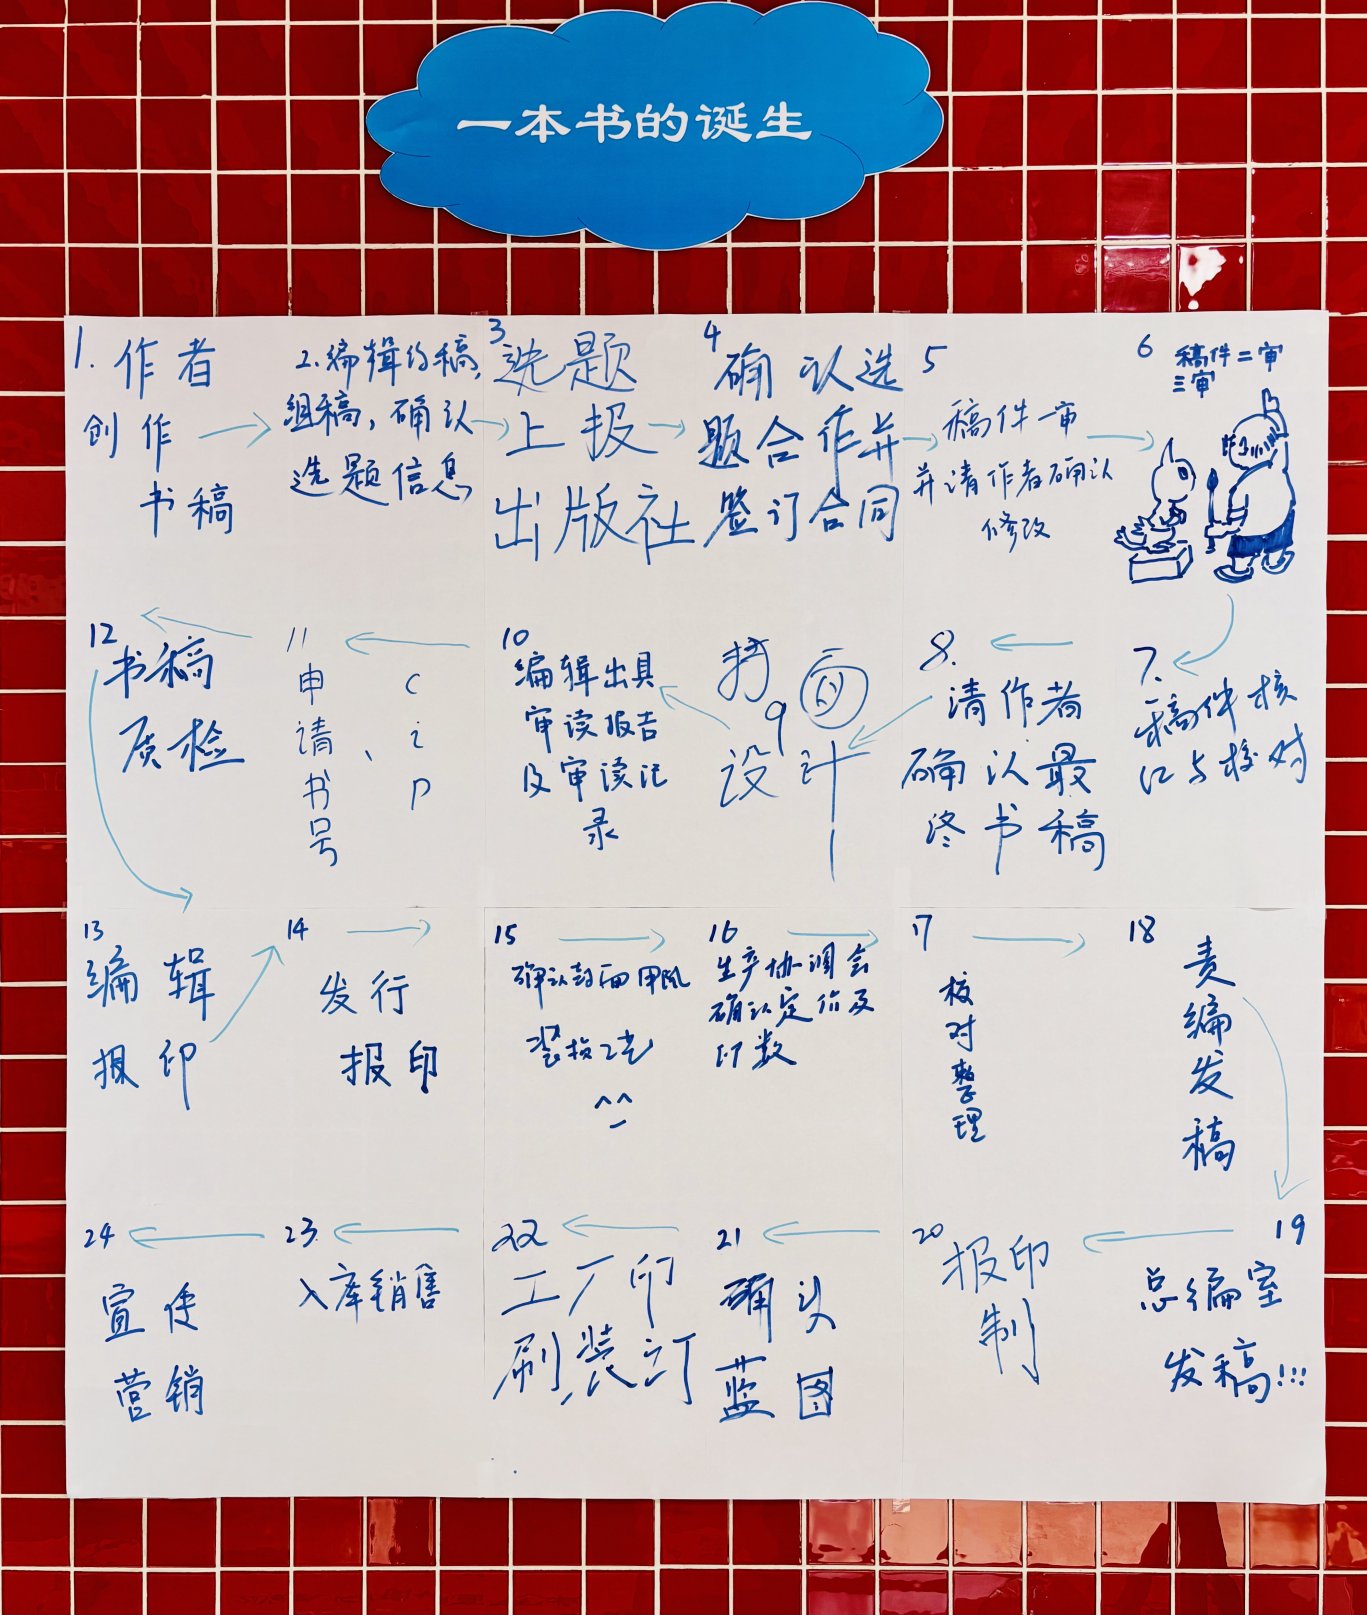 一本书的诞生
1. 作者
创作
书稿
2. 编辑约稿,
组稿,确认
选题信息
3
选题
上报
出版社
4
确认选
题合作并
签订合同
5
稿件一审
并请作者确认
修改
6
稿件二审
三审
7.
稿件核
红与校对
8.
请作者
确认最
终书稿
9
封面
设计
10
编辑出具
审读报告
及审读记
录
11
申请书号、
CiP
12
书稿
质检
13
编辑
报印
14
发行
报印
15
确认封面用纸
装按工艺
^_^
16
生产协调会
确认定价及
印数
17
校对整理
18
责编发稿
19
总编室
发稿!!!
20
报印
制
21
确认
蓝图
22
工厂印
刷,装订
23.
入库销售
24
宣传
营销